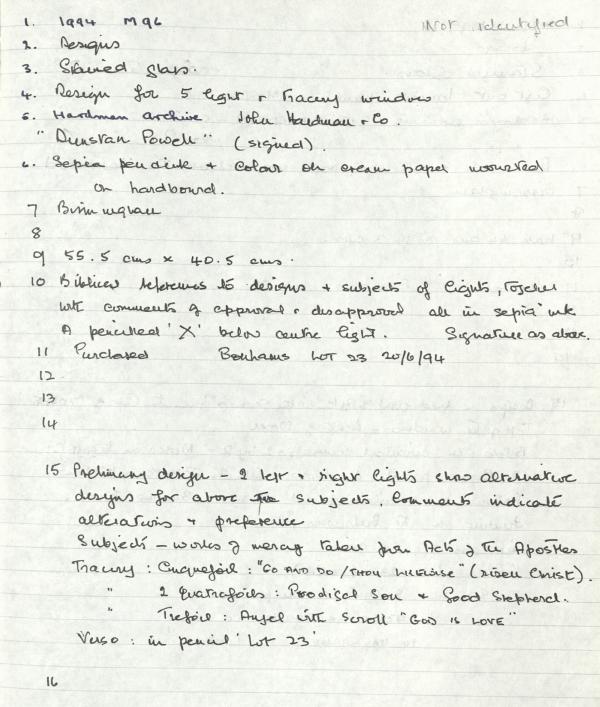 Not identified
1. 1994 M96
2. Designs
3. Stained glass.
4. Design for 5 light + Tracery window
5. Hardman archive John Hardman & Co.
"Dunstan Powell" (signed).
6. Sepia pen & ink + colour on cream paper mounted
on hardboard.
7 Birmingham
8
9 55.5 cms x 40.5 cms.
10 Biblical references to designs + subjects of lights, together
with comments of approval + disapproval all in sepia ink
A pencilled 'X' below centre light. Signature as above.
11 Purchased Bonhams LOT 23 20/6/94
12
13
14
15 Preliminary design - 2 left + right lights show alternative
designs for above subjects. Comments indicate
alterations + preference
Subjects - works of mercy taken from Acts of the Apostles
Tracery : Cinquefoil : "GO AND DO / THOU LIKEWISE" (risen Christ).
" 2 Quatrefoils : Prodigal Son & Good Shepherd.
" Trefoil : Angel with Scroll "GOD IS LOVE"
Verso : in pencil 'Lot 23'
16